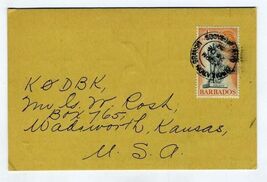 BARBADOS
KØDBK,
Mr. G. W. Rosh,
Box 765,
Wadsworth, Kansas,
U. S. A.